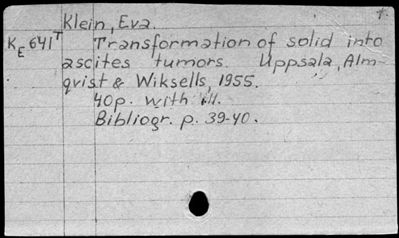 Klein, Eva.
KE 641T Transformation of solid into
ascites tumors. Uppsala, Alm-
qvist & Wiksells, 1955.
40p. with ill.
Bibliogr. p. 39-40.